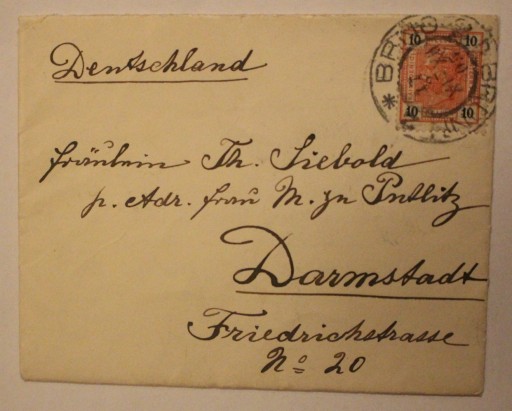 10 10
10 10
BRNO BRÜNN
Deutschland
Fräulein Th. Siebold
p. Adr. Frau M. zu Putlitz
Darmstadt
Friedrichstrasse
No 20